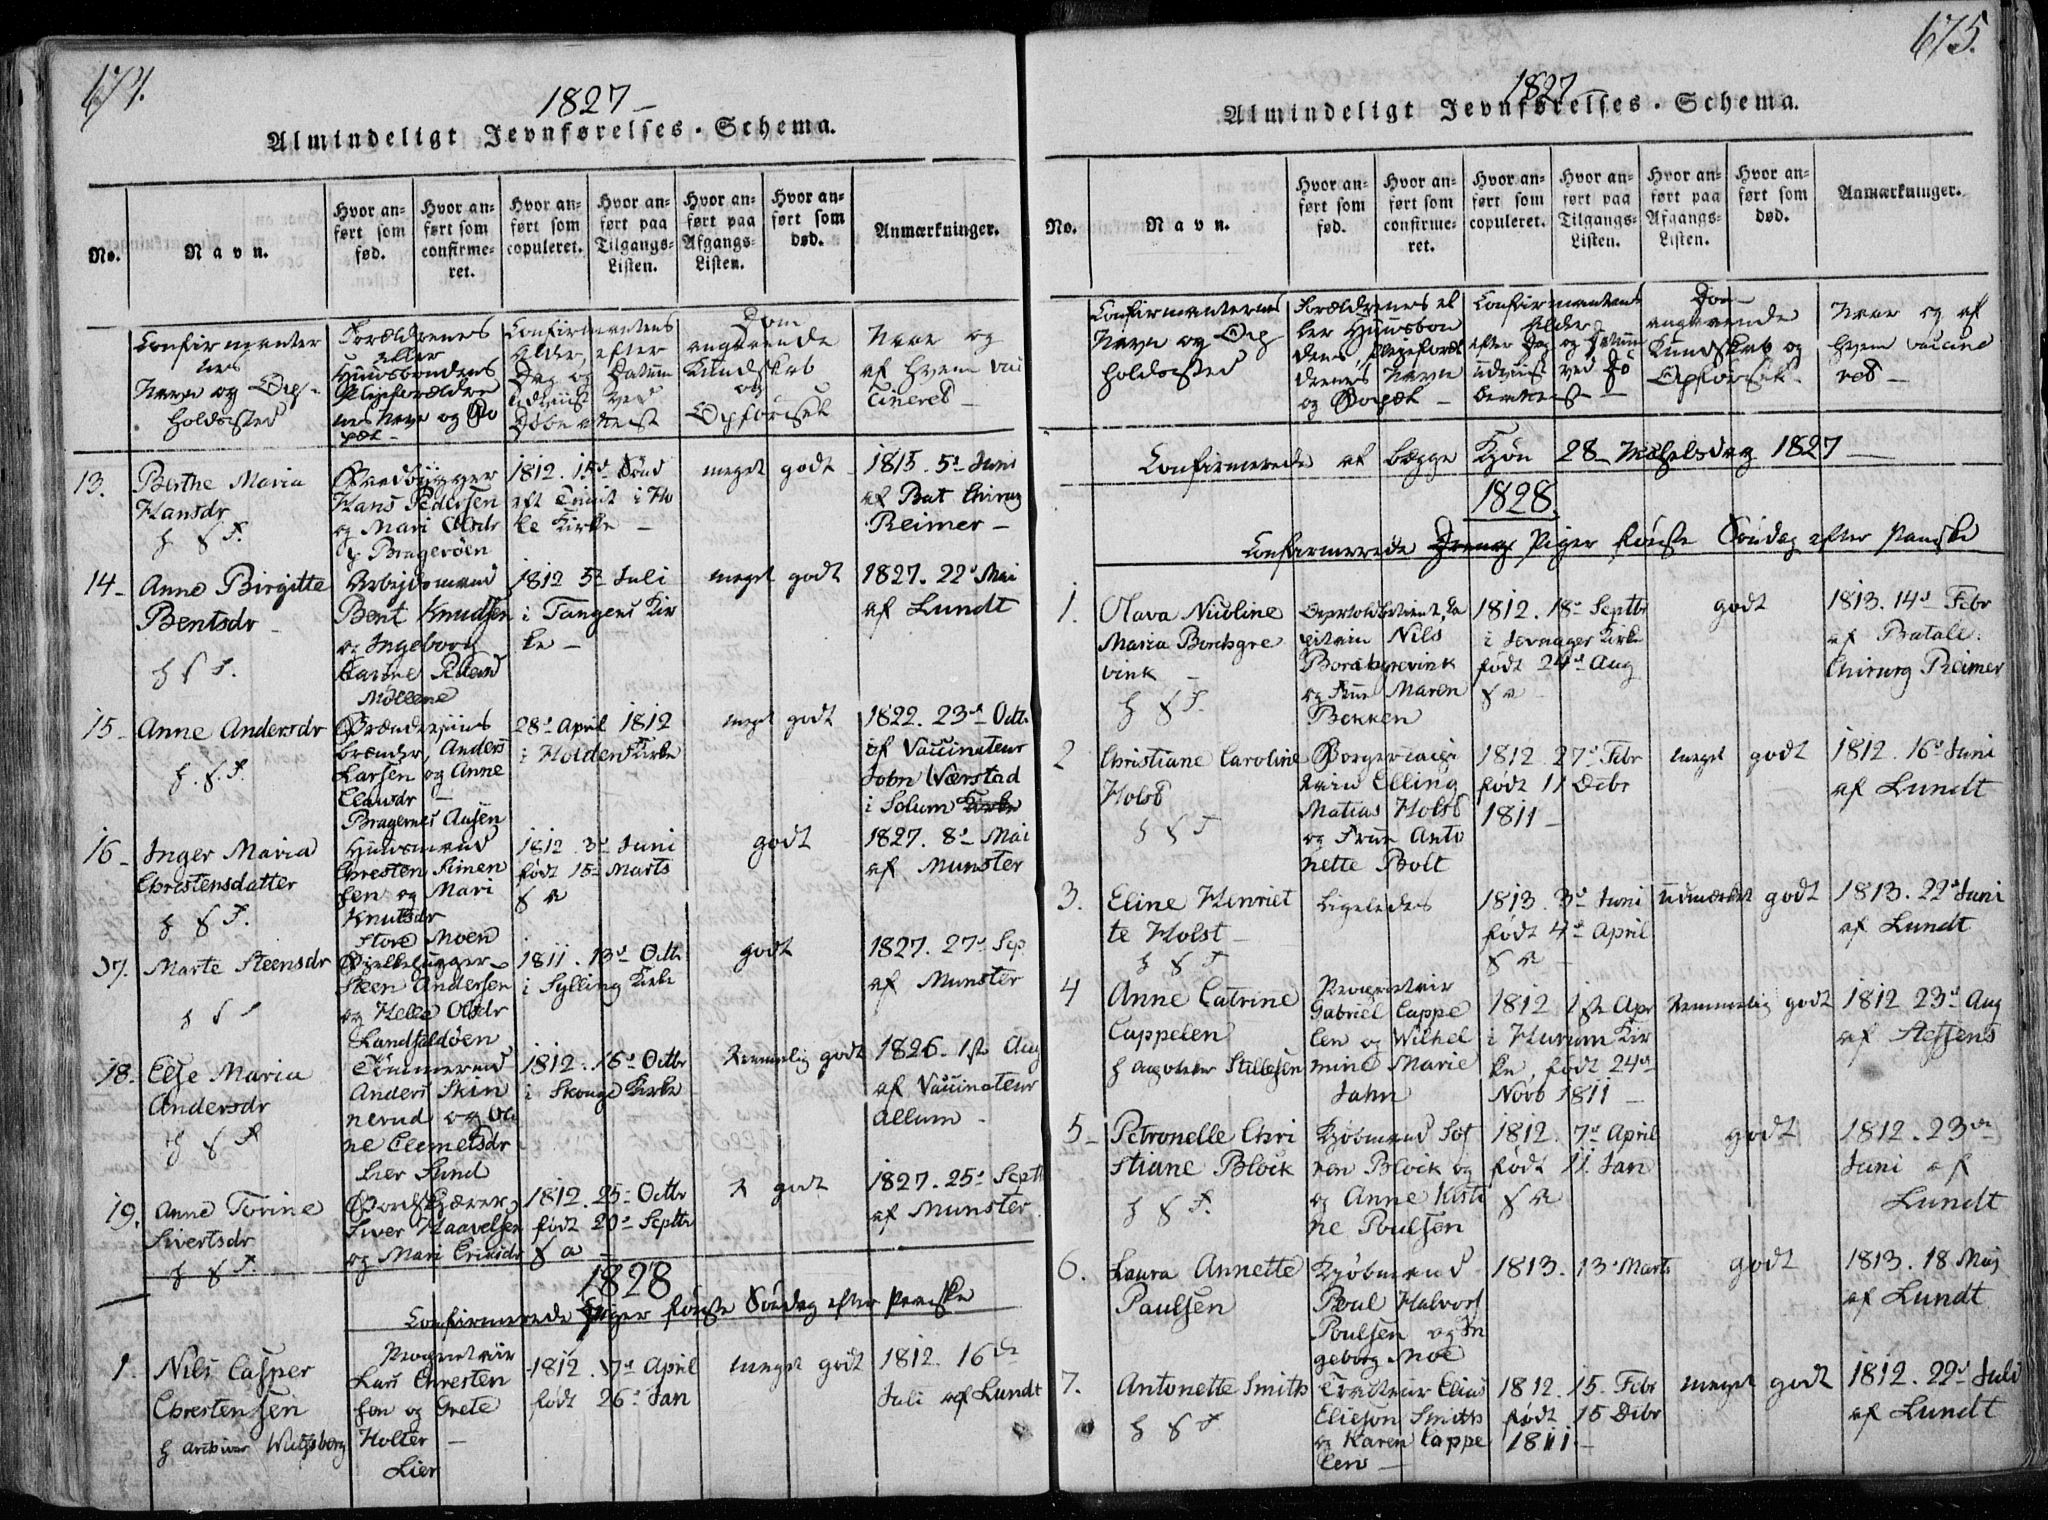 674.
1827
Almindeligt Jevnførelses-Schema.
No.
Navn.
Hvor anført som fød.
Hvor anført som confirmeret.
Hvor anført som copuleret.
Hvor anført paa Tilgangs-Listen.
Hvor anført paa Afgangs-Listen.
Hvor anført som død.
Anmærkninger.
Confirmanter
nes
Navn og Op-
holdssted
Forældrenes
eller
Huusbondens
Plejeforældre
nes Navn og Bo
pæl
Confirmantens
Alder, efter
Dag og Datum
udviist ved
Døbe Attest
Dom
angaaende
Kundskab
og
Opførsel
Naar og
af hvem vac
cineret
13.
Berthe Maria
Hansdr
Hans Pedersen
og Mari Olsdr
p Bragerøen
1812. 15d Sønd
eft Trinit i Ho
le Kirke
meget godt
1815. 5d Juni
af Bat Chirurg
Reimer
14
Anne Birgitte
Bentsdr
Arbejdsmand
Bent Knudsen
og Ingeborg
Møllene
1812 5d Juli
i Tangens Kir
ke
meget godt
1827. 22d Mai
af Lundt
15
Anne Andersdr
Brændeviins
brænder, Anders
Larsen og Anne
Clausdr
Bragernes Aasen
28d April 1812
i Holden Kirke
meget godt
1822. 23d Octbr
af Vaccinateur
John Værstad
i Solum
16
Inger Maria
Christensdatter
Huusmand
Christen Simen
sen og Mari
Knutsdr
Store Moen
1812. 3d Juni
født 15d Marts
godt
1827. 8d Mai
af Munster
17.
Marte Steensdr
Bjelkehugger
Steen Andersen
og Helle Olsdr
Landfaldøen
1811. 13d Octbr
i Sylling Kirke
godt
1827. 27d Sep
af Munster
18.
Else Maria
Andersdr
Tømmermand
Anders Skin
nerud og Ole
ne Clemetsdr
Lier Sund
1812. 16d Octbr
i Skouge Kirke
temmelig godt
1826. 1ste Aug
af Vaccinateur
Allum
19.
Anne Torine
Sivertsdr
Bordskjærer
Siver Haavelsen
og Mari Ericsdr
1812. 25d Octbr
født 20d Septbr
godt
1827. 25d Septb
af Munster
1828
Confirmerede første Søndag efter Paaske
1.
Nils Casper
Christensen
Proprietair
Lars Christen
sen og Grete
Holter
Lier
1812. 17d April
født 26d Jan
meget godt
1812. 16de
Juli af Lundt
675.
1827
Almindeligt Jevnførelses-Schema.
No.
Navn.
Hvor anført som fød.
Hvor anført som confirmeret.
Hvor anført som copuleret.
Hvor anført paa Tilgangs-Listen.
Hvor anført paa Afgangs-Listen.
Hvor anført som død.
Anmærkninger.
Confirmanternes
Navn og Op
holdssted
Forældrenes el
ler Huusbon
dens, Plejeforæl
drenes Navn
og Bopæl
Confirmantens
Alder
efter Dag og Datum
udviist ved Dø
beattest
Dom
angaaende
Kundskab og
Opførsel
Naar og af
hvem vaccine
ret
Confirmerede af begge Kjøn 28 Michelsdag 1827
1828.
Confirmerede Drenge Piger første Søndag efter Paaske
1.
Olava Nicoline
Maria Borchgre
vink
Overtoldbetient, Ca
pitain Nils
Borchgrevink
og Frue Maren
Bekken
1812. 18d Septbr
i Jevnager Kirke
født 24d Aug
godt
1813. 14d Febr
af Batail.
Chirurg Reimer
2
Christiane Caroline
Holst
Borgercapi
tain Elling
Matias Holst
og Frue Anto
nette Bolt
1812. 27d Febr
født 11 Decbr
1811
meget godt
1812. 16d Juni
af Lundt
3.
Eline Henriet
te Holst
Ligeledes
1813. 3d Juni
født 4d April
udmærket godt
1813. 22d Juni
af Lundt
4
Anne Catrine
Cappelen
Proprietair
Gabriel Cappe
len og Wilhel
mine Marie
Jahn
1812 1ste Apr
i Hurum Kir
ke, født 24d
Novb 1811
temmelig godt
1812 23d Aug
af
5
Petronelle Chri
stiane Block
Kjøbmand Søf
ren Block og
og Anne Kisti
ne Poulsen
1812. 7d April
født 11 Jan
godt
1812. 23de
Juni af
Lundt
6.
Laura Annette
Paulsen
Kjøbmand
Poul Halvors
Poulsen og In
geborg Moe
1813. 13d Marts
godt
1813. 18 Maj
af Lundt
7.
Antonette Smith
Tracteur Elias
Elieson Smith
og Karen Cappe
len
1812. 15. Febr
født 15 Decbr
1811
meget godt
1812. 22d Juli
af Lundt